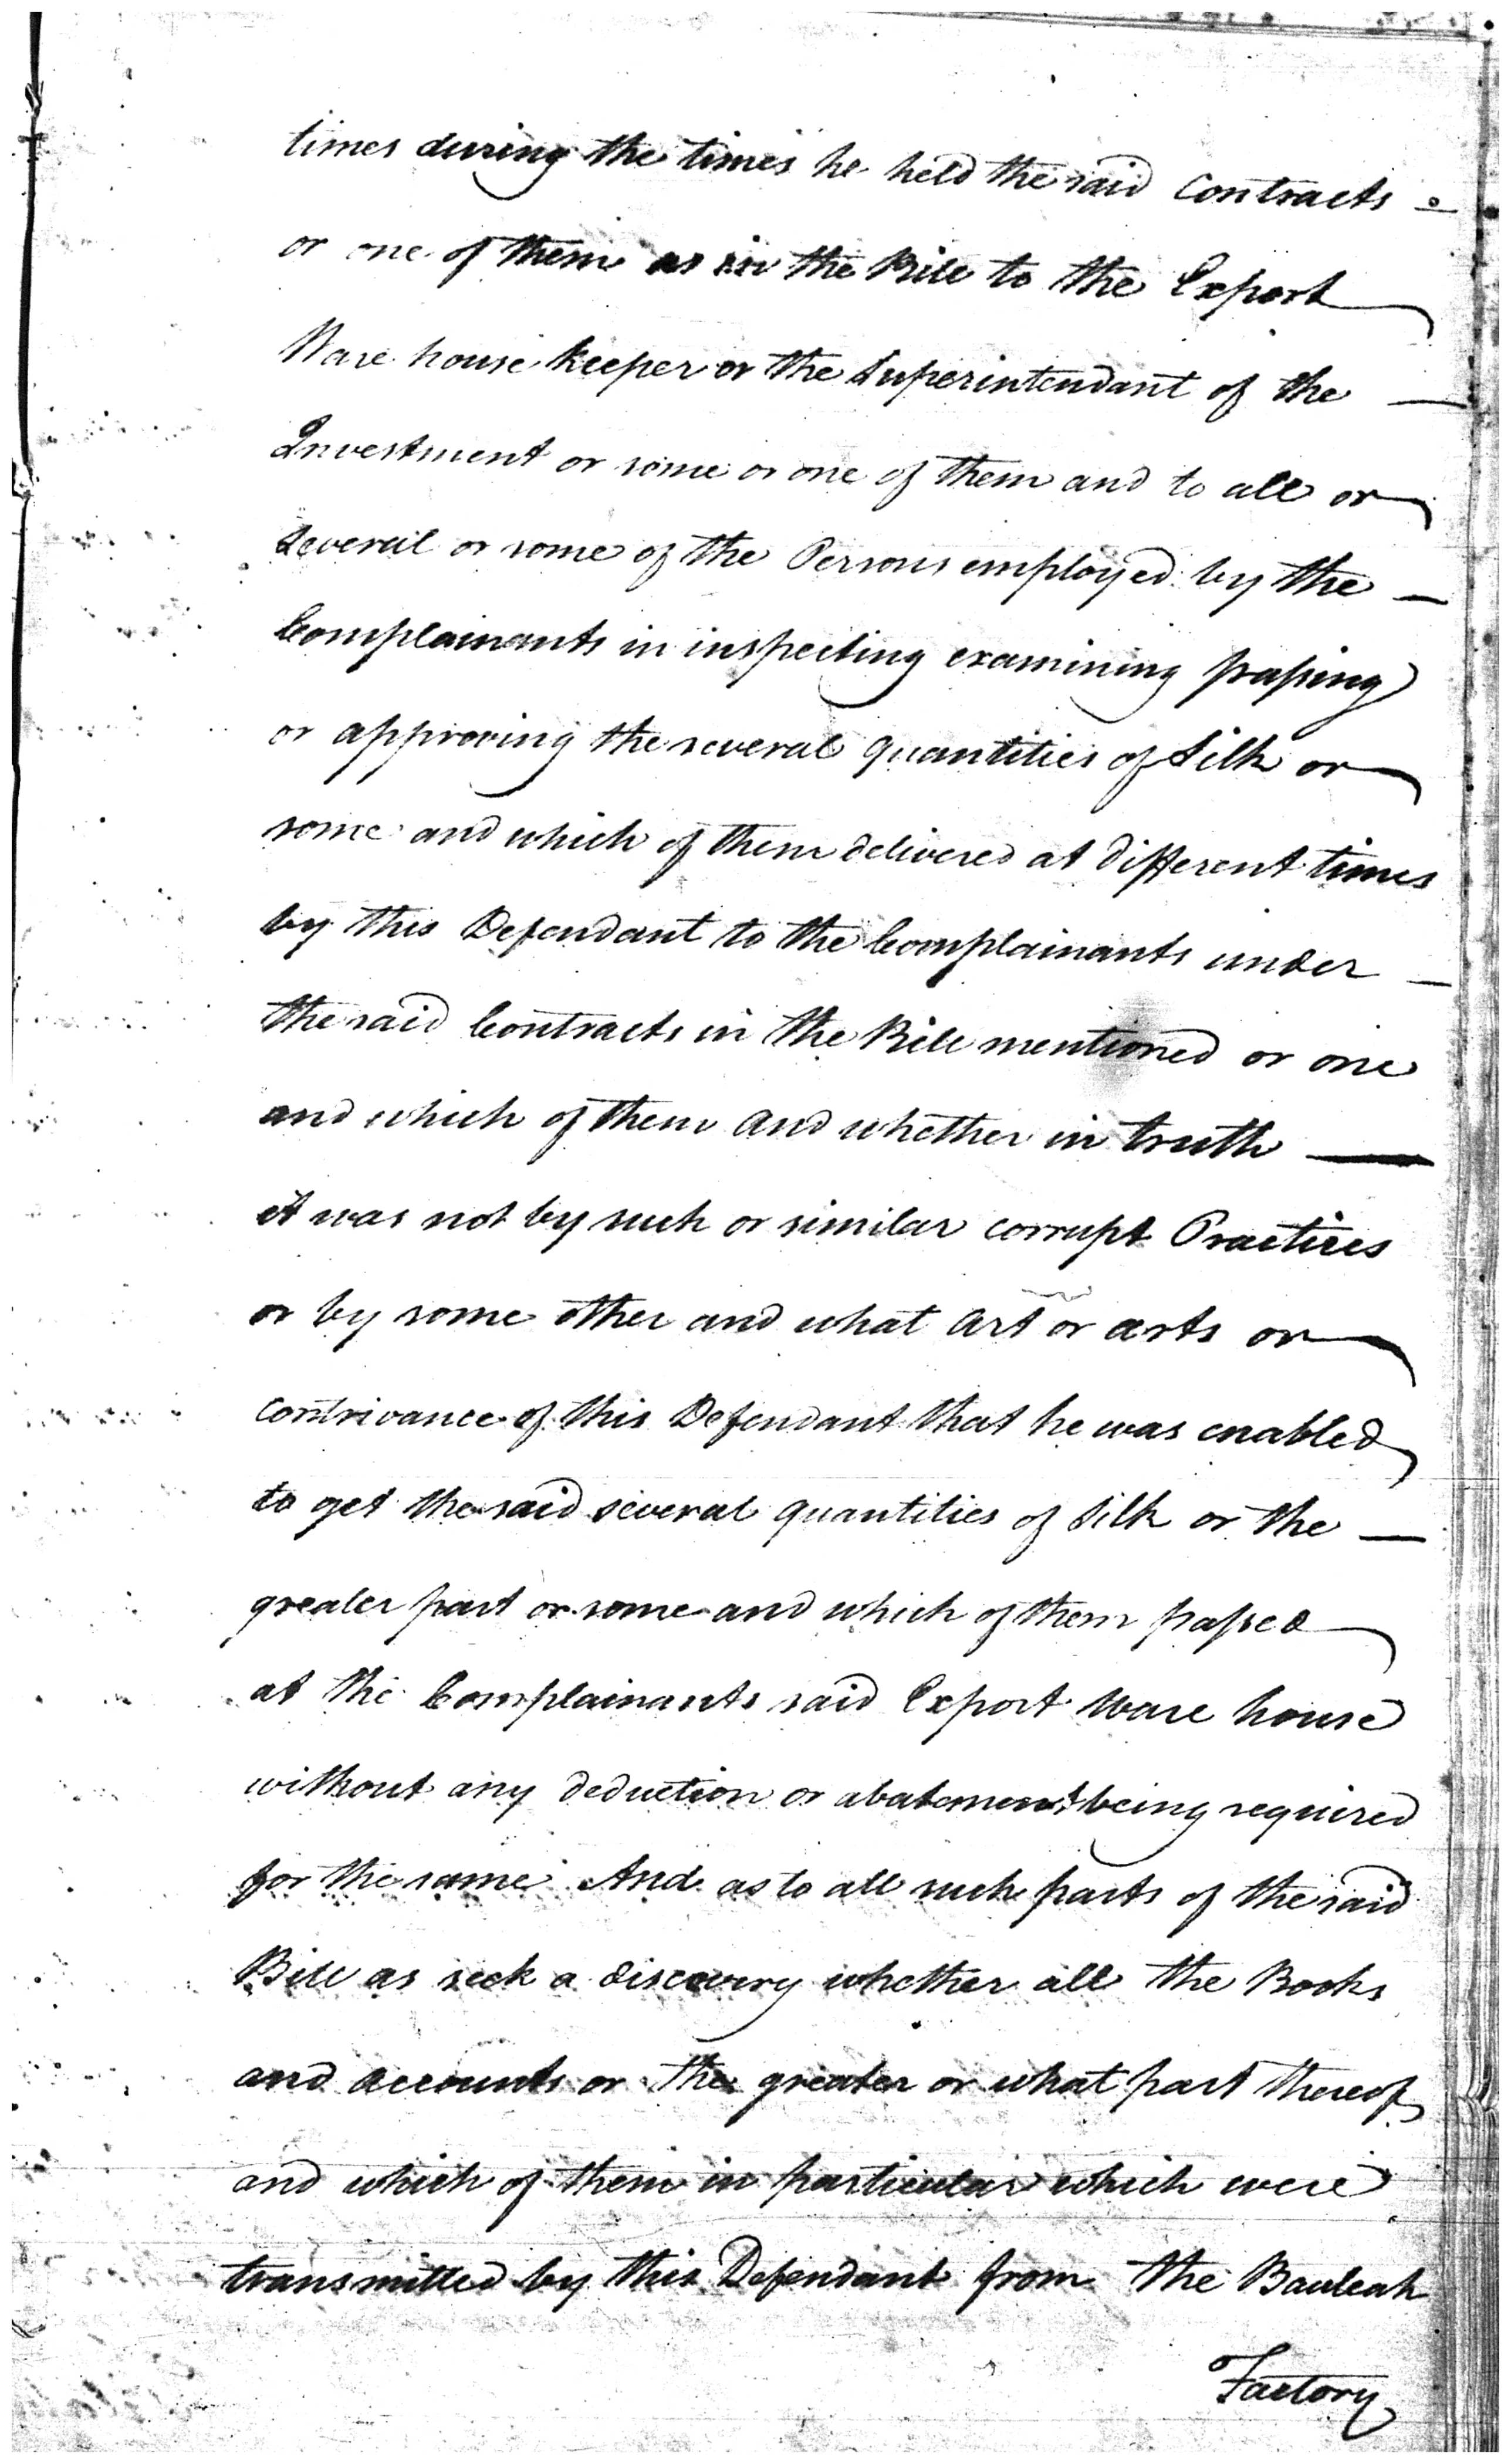 times during the times he held the said Contracts
or one of them as in the Bill to the Export
Ware house keeper or the Superintendant of the
Investment or some or one of them and to all or
Several or some of the Persons employed by the
Complainants in inspecting examining passing
or approving the several quantities of Silk or
some and which of them delivered at different times
by this Defendant to the Complainants under
the said Contracts in the Bill mentioned or one
and which of them and whether in truth
it was not by such or similar corrupt Practices
or by some other and what art or arts or
contrivance of this Defendant that he was enabled
to get the said several quantities of Silk or the
greater part or some and which of them passed
at the Complainants said Export Ware house
without any deduction or abatement being required
for the same And as to all such parts of the said
Bill as seek a discovery whether all the Books
and accounts or the greater or what part thereof
and which of them in particular which were
transmitted by this Defendant from the Bauleah
Factory